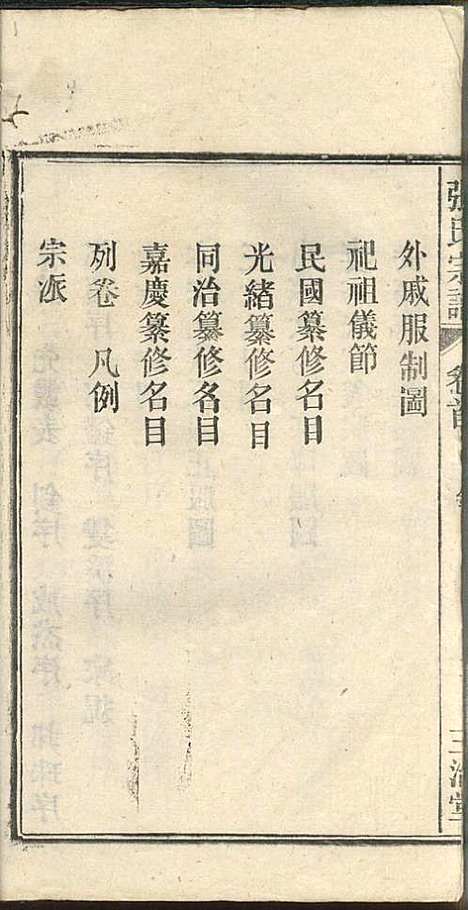 張氏宗譜
卷首
外戚服制圖
祀祖儀節
民國纂修名目
光緒纂修名目
同治纂修名目
嘉慶纂修名目
列卷 凡例
宗派